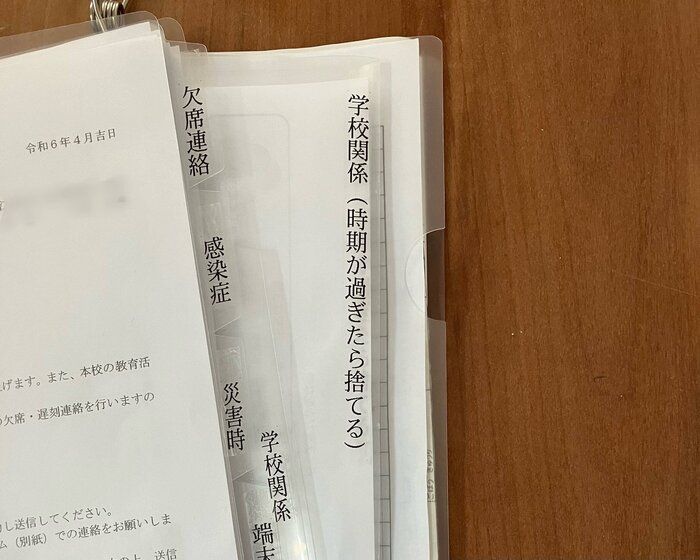 令和6年4月吉日
げます。また、本校の教育活
欠席・遅刻連絡を行いますの
し送信してください。
ム（別紙）での連絡をお願いしま
の上、送信
欠席連絡
感染症
災害時
学校関係
端末
学校関係（時期が過ぎたら捨てる）